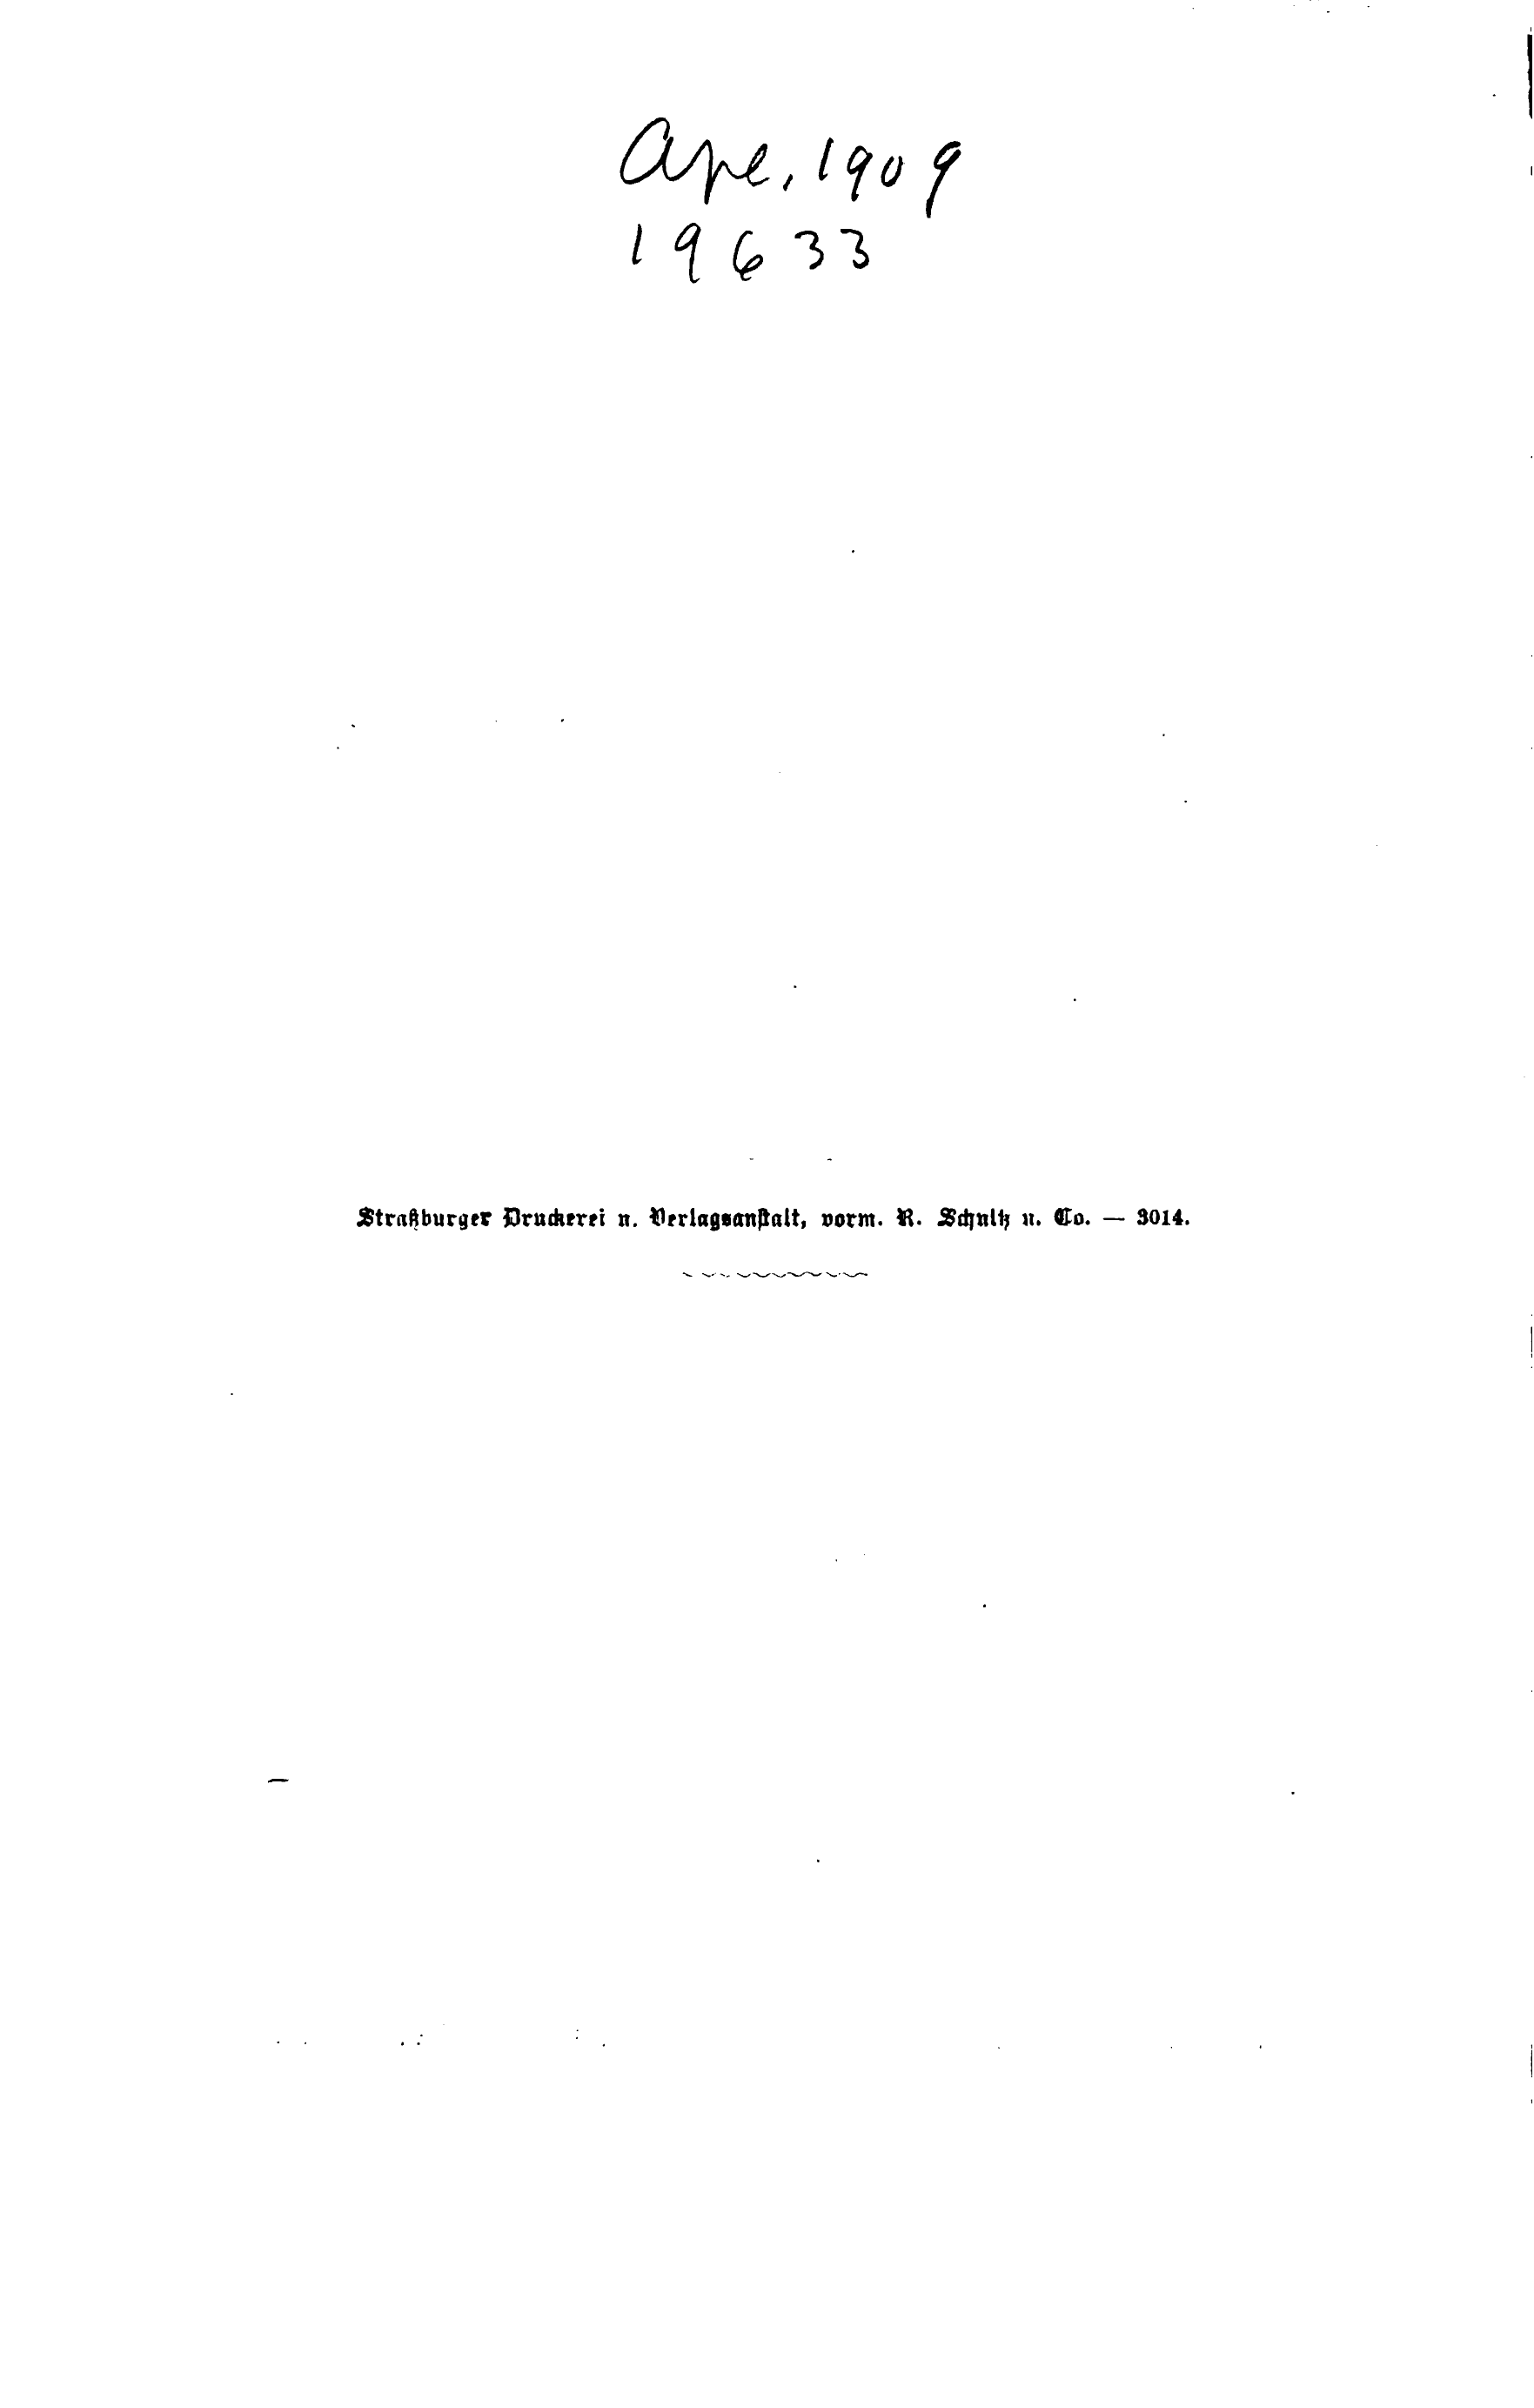 Ape, 1909
19633
Straßburger Druckerei u. Verlagsanstalt, vorm. R. Schultz u. Co. — 3014.